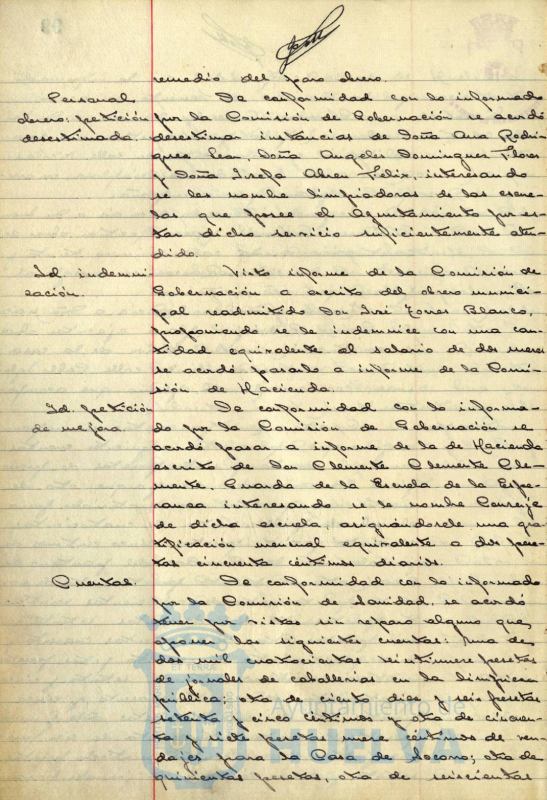 remedio del paro obrero.
Personal
obrero: petición
desestimada.
De conformidad con lo informado
por la Comisión de Gobernación se acordó
desestimar instancias de Doña Ana Rodrí-
guez Leon, Doña Angeles Dominguez Flores
y Doña Josefa Abreu Felix, interesando
se les nombre limpiadoras de las escue-
las que posee el Ayuntamiento por es-
tar dicho servicio suficientemente aten-
dido.
Id. indemni-
zación.
Visto informe de la Comisión de
Gobernación a escrito del obrero munici-
pal readmitido Don José Torres Blanco,
proponiendo se le indemnice con una can-
tidad equivalente al salario de dos meses
se acordó pasarlo a informe de la Comi-
sión de Hacienda.
Id. petición
de mejora
De conformidad con lo informa-
do por la Comisión de Gobernación se
acordó pasar a informe de la de Hacienda
escrito de Don Clemente Clemente Cle-
mente, Guarda de la Escuela de la Espe-
ranza interesando se le nombre Conserje
de dicha escuela, asignándosele una gra-
tificación mensual equivalente a dos pese-
tas cincuenta céntimos diarios.
Cuentas.
De conformidad con lo informado
por la Comisión de Sanidad, se acordó
tener por vistas sin reparo alguno que
oponer las siguientes cuentas: Una de
dos mil cuatrocientas veintinueve pesetas
de jornales de caballerías en la limpieza
pública; otra de ciento diez y seis pesetas
setenta y cinco céntimos y otra de cincuen-
ta y siete pesetas nueve céntimos de ven-
dajes para la Casa de Socorro; otra de
quinientas pesetas, otra de seiscientas
Ayuntamiento de
HUELVA